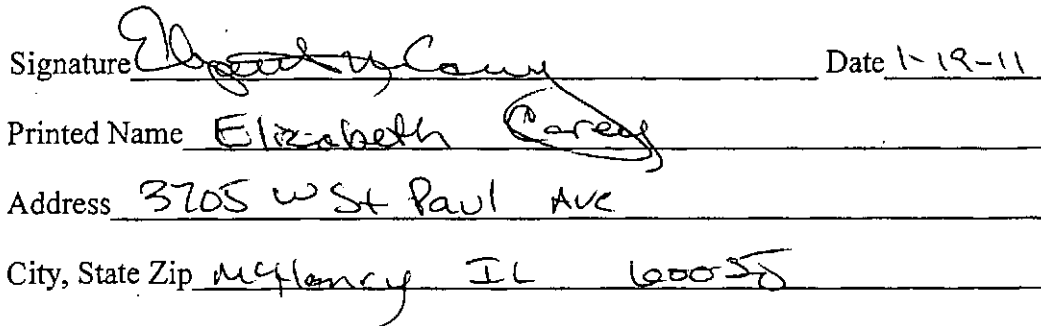 Signature Elizabeth M Carey Date 1-19-11
Printed Name Elizabeth Carey
Address 3705 W St Paul Ave
City, State Zip McHenry IL 60050